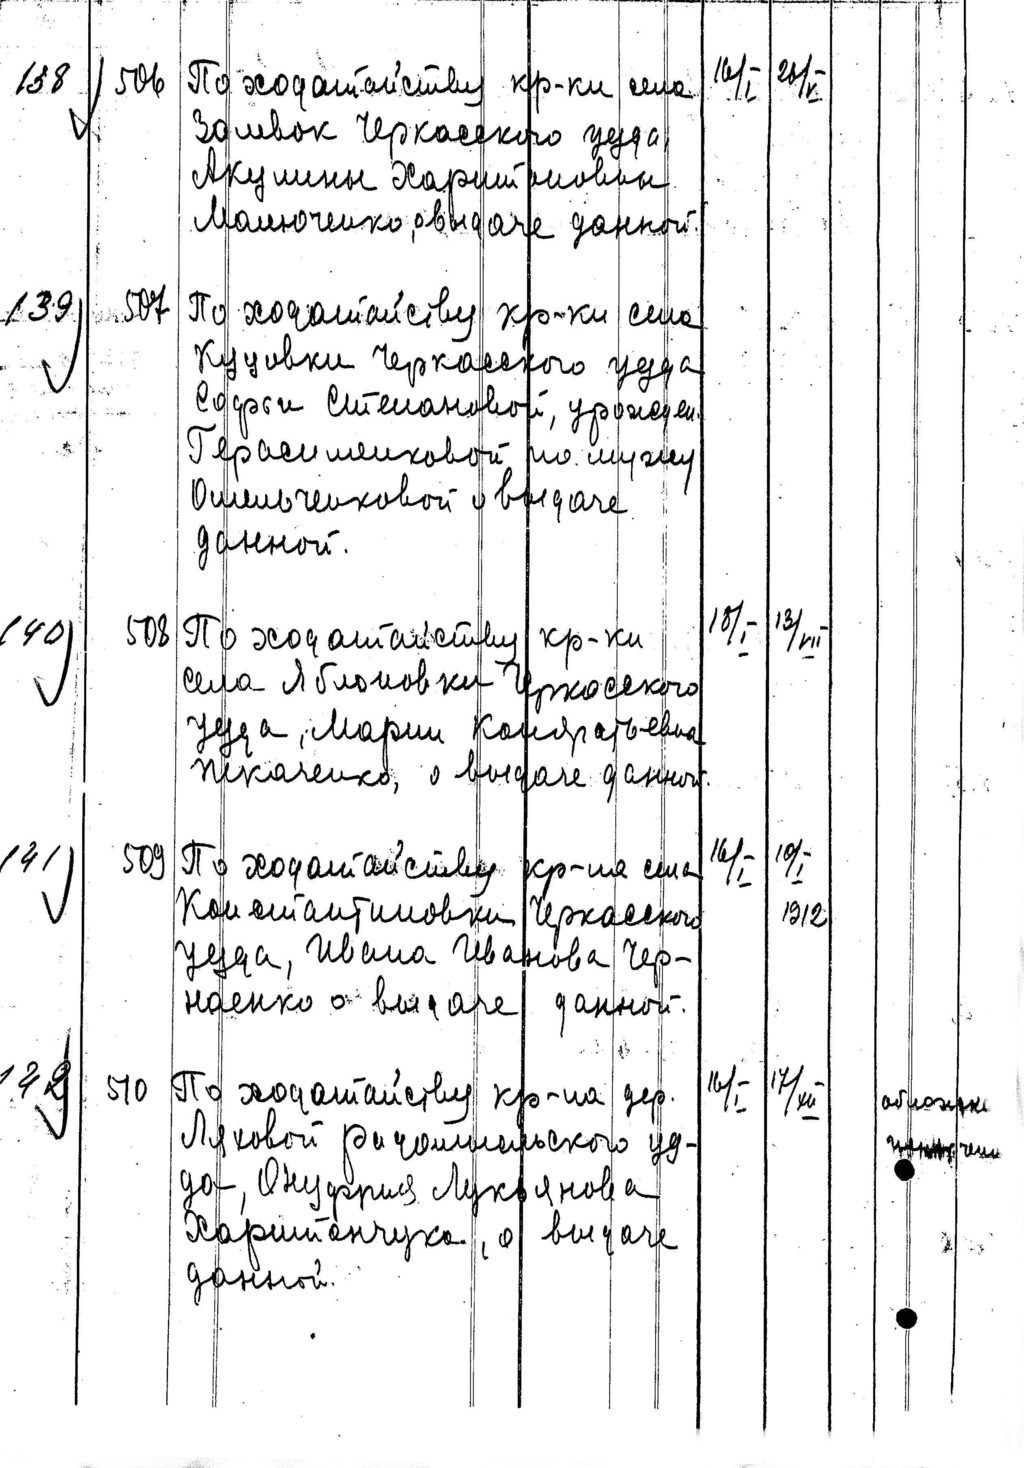 138 506 По ходатайству кр-ки села 16/I 20/V
Заливок Черкасского уезда,
Акулины Харитоновны
Малюченко, о выдаче данной.
139 507 По ходатайству кр-ки села
Куцовки Черкасского уезда
Софьи Степановой, урожден.
Герасименковой по мужу
Омельченковой о выдаче
данной.
140 508 По ходатайству кр-ки 18/I 13/VII
села Яблоновки Черкасского
уезда, Марии Кондратьевны
Ткаченко, о выдаче данной.
141 509 По ходатайству кр-на села 16/I 10/I
Константиновки Черкасского 1912
уезда, Ивана Иванова Чер-
наенко о выдаче данной.
142 510 По ходатайству кр-на дер. 16/I 17/XII
Ляховой Радомысльского уез-
да, Онуфрия Лукьянова
Харитончука, о выдаче
данной.